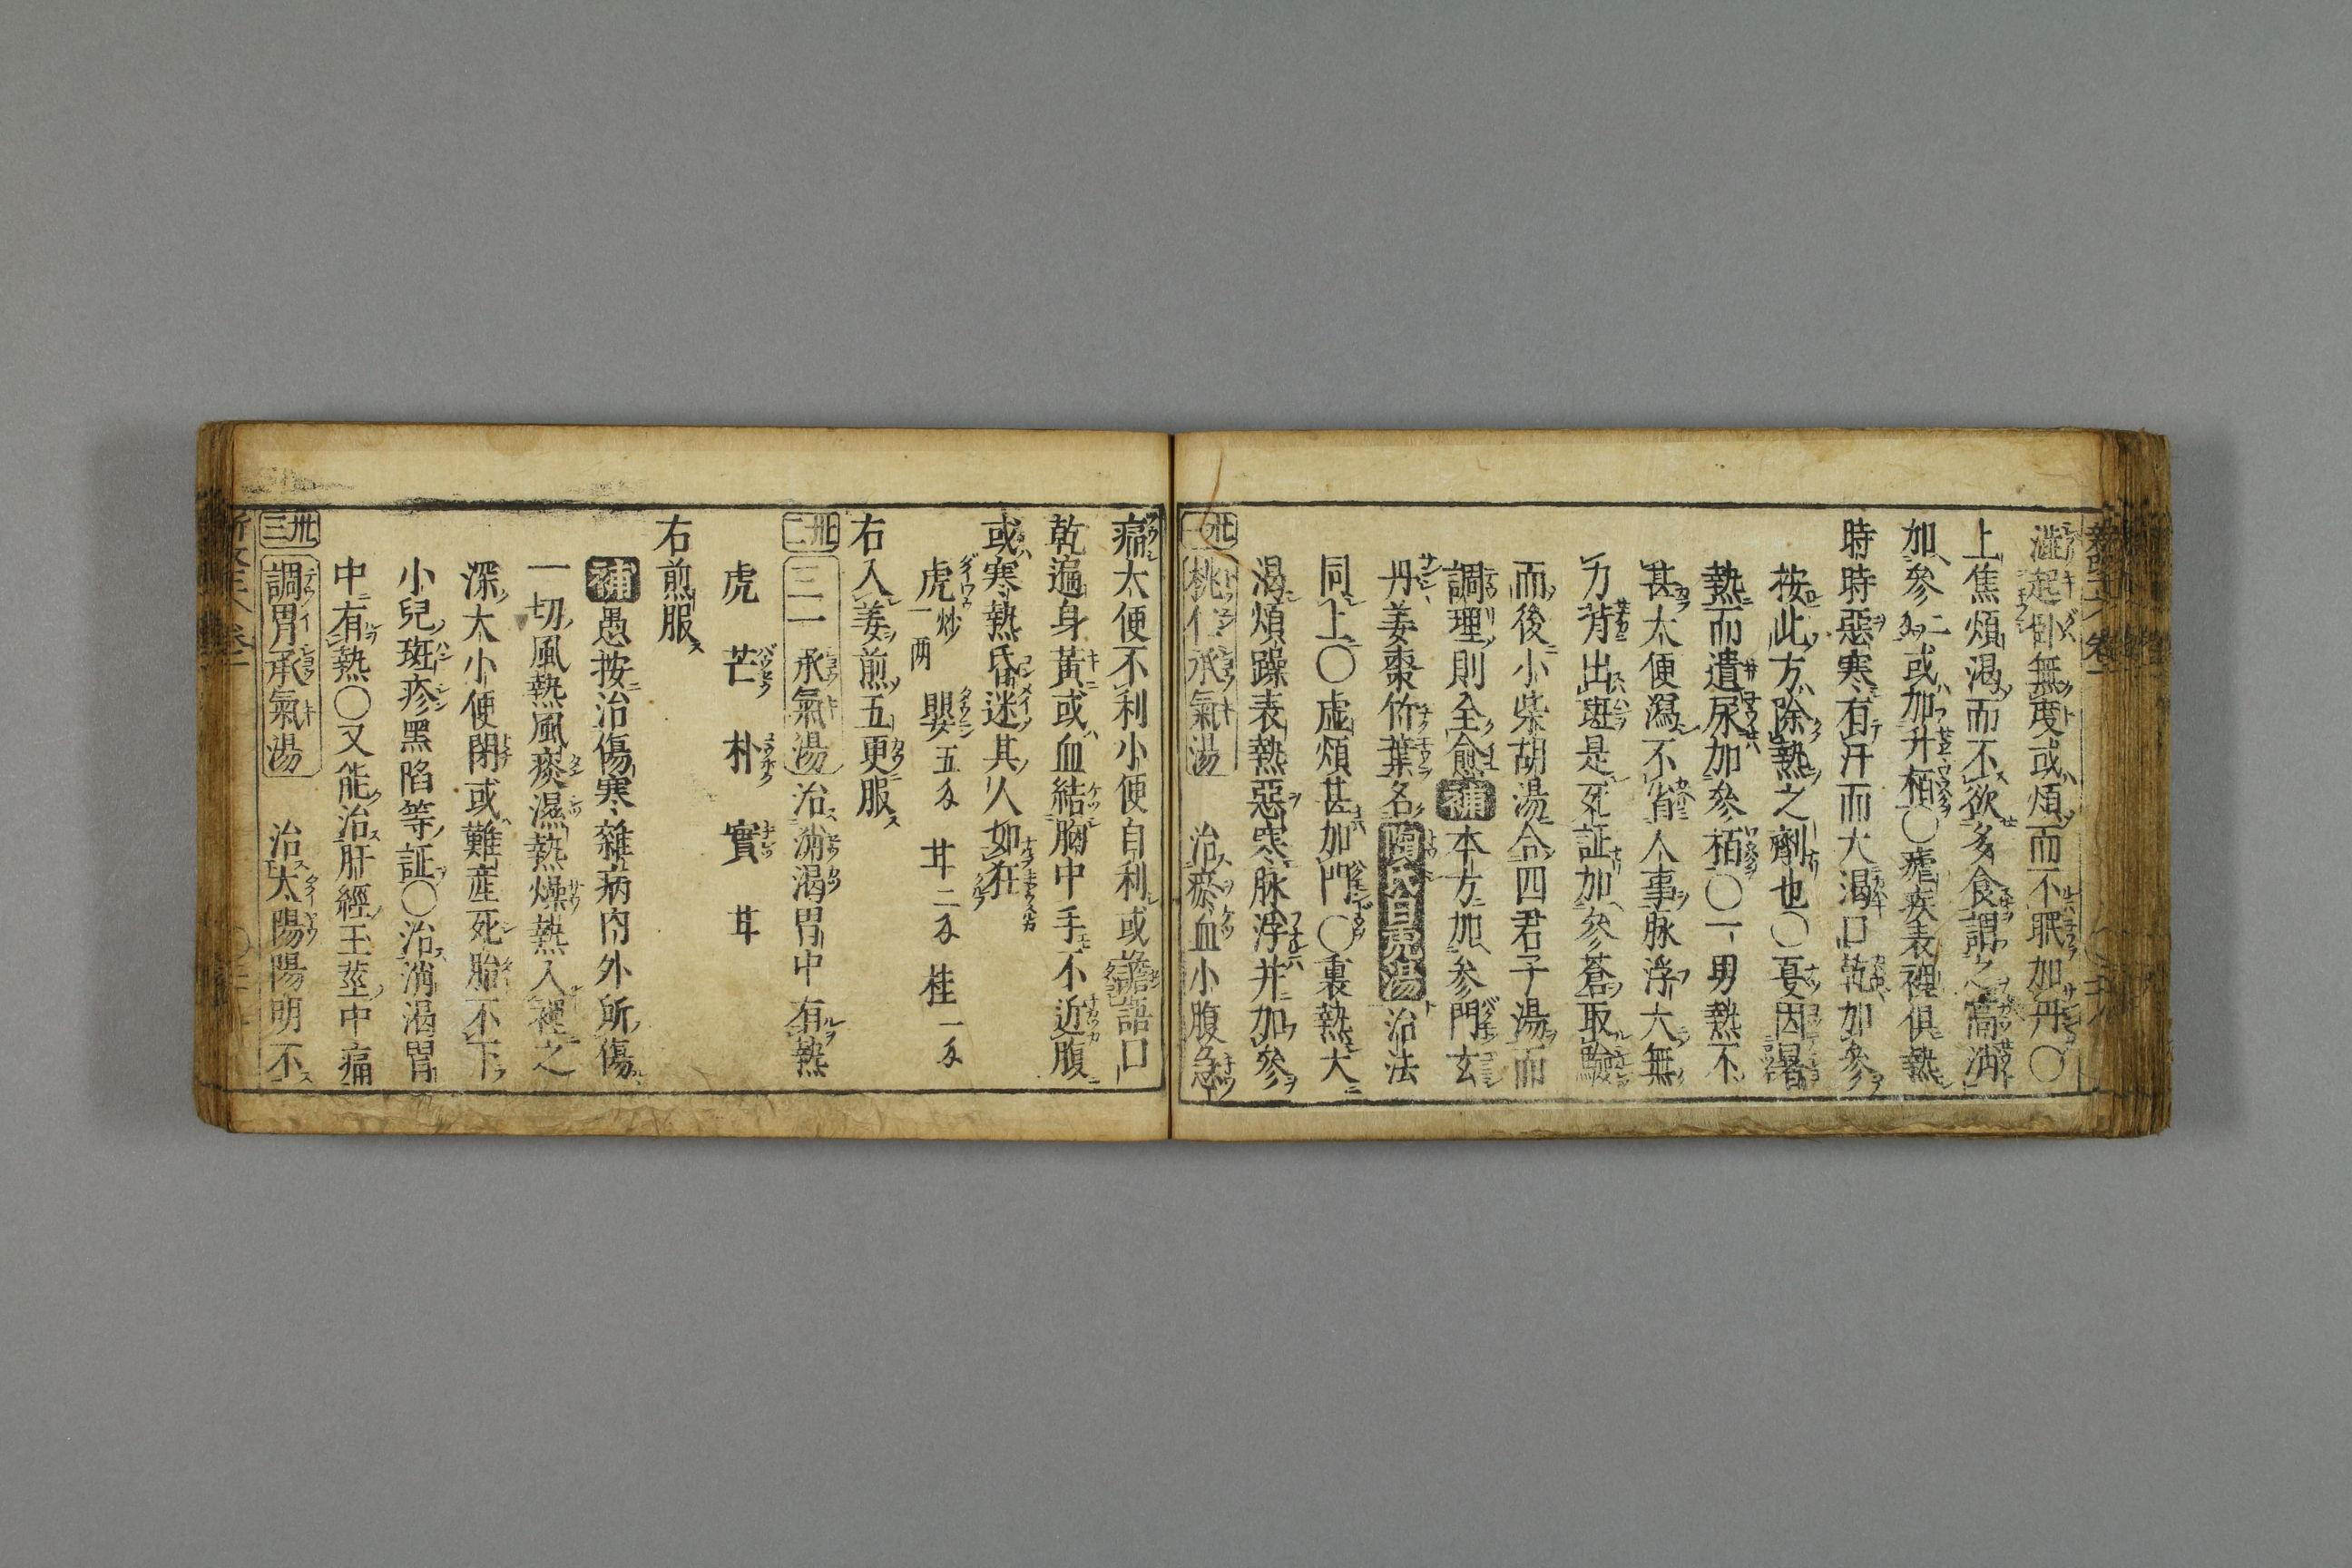 渥起臥無度或煩而不眠加丹〇
上焦煩渴而不欲多食謂之膈消
加參如二或加升栢〇瘧疾表裡俱熱
時時惡寒有汗而大渴口乾加參
按此方除熱之劑也〇夏因暑
熱而遺尿加參栢〇一男熱不
甚大便瀉不省人事脉浮大無
力背出斑是死証加參蒼取驗
而後小柴胡湯合四君子湯而
調理則全愈 補 本方加參門玄
丹姜棗竹葉名 陶氏白虎湯 治法
同上〇虛煩甚加門〇裏熱大
渴煩躁表熱惡寒脉浮并加參
卅一 桃仁承氣湯 治瘀血小腹急
痛大便不利小便自利或譫語口
乾遍身黃或血結胸中手不近腹
或寒熱昏迷其人如狂
虎一兩炒 嬰五分 甘二分 桂一分
右入姜煎五更服
卅二 三一承氣湯 治消渴胃中有熱
虎 芒 朴 實 甘
右煎服
補 愚按治傷寒雜病内外所傷
一切風熱風痰濕熱燥熱入裡之
深大小便閉或難產死胎不下
小兒斑疹黑陷等証〇治消渴胃
中有熱〇又能治肝經王莖中痛
卅三 調胃承氣湯 治太陽陽明不